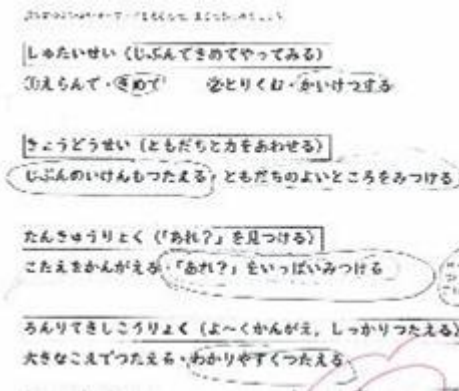 しゅたいせい（じぶんできめてやってみる）
①えらんで・きめて　②とりくむ・かいけつする
きょうどうせい（ともだちと力をあわせる）
じぶんのいけんもつたえる・ともだちのよいところをみつける
たんきゅうりょく（「あれ？」を見つける）
こたえをかんがえる・「あれ？」をいっぱいみつける
ろんりてきしこうりょく（よ～くかんがえ，しっかりつたえる）
大きなこえでつたえる・わかりやすくつたえる